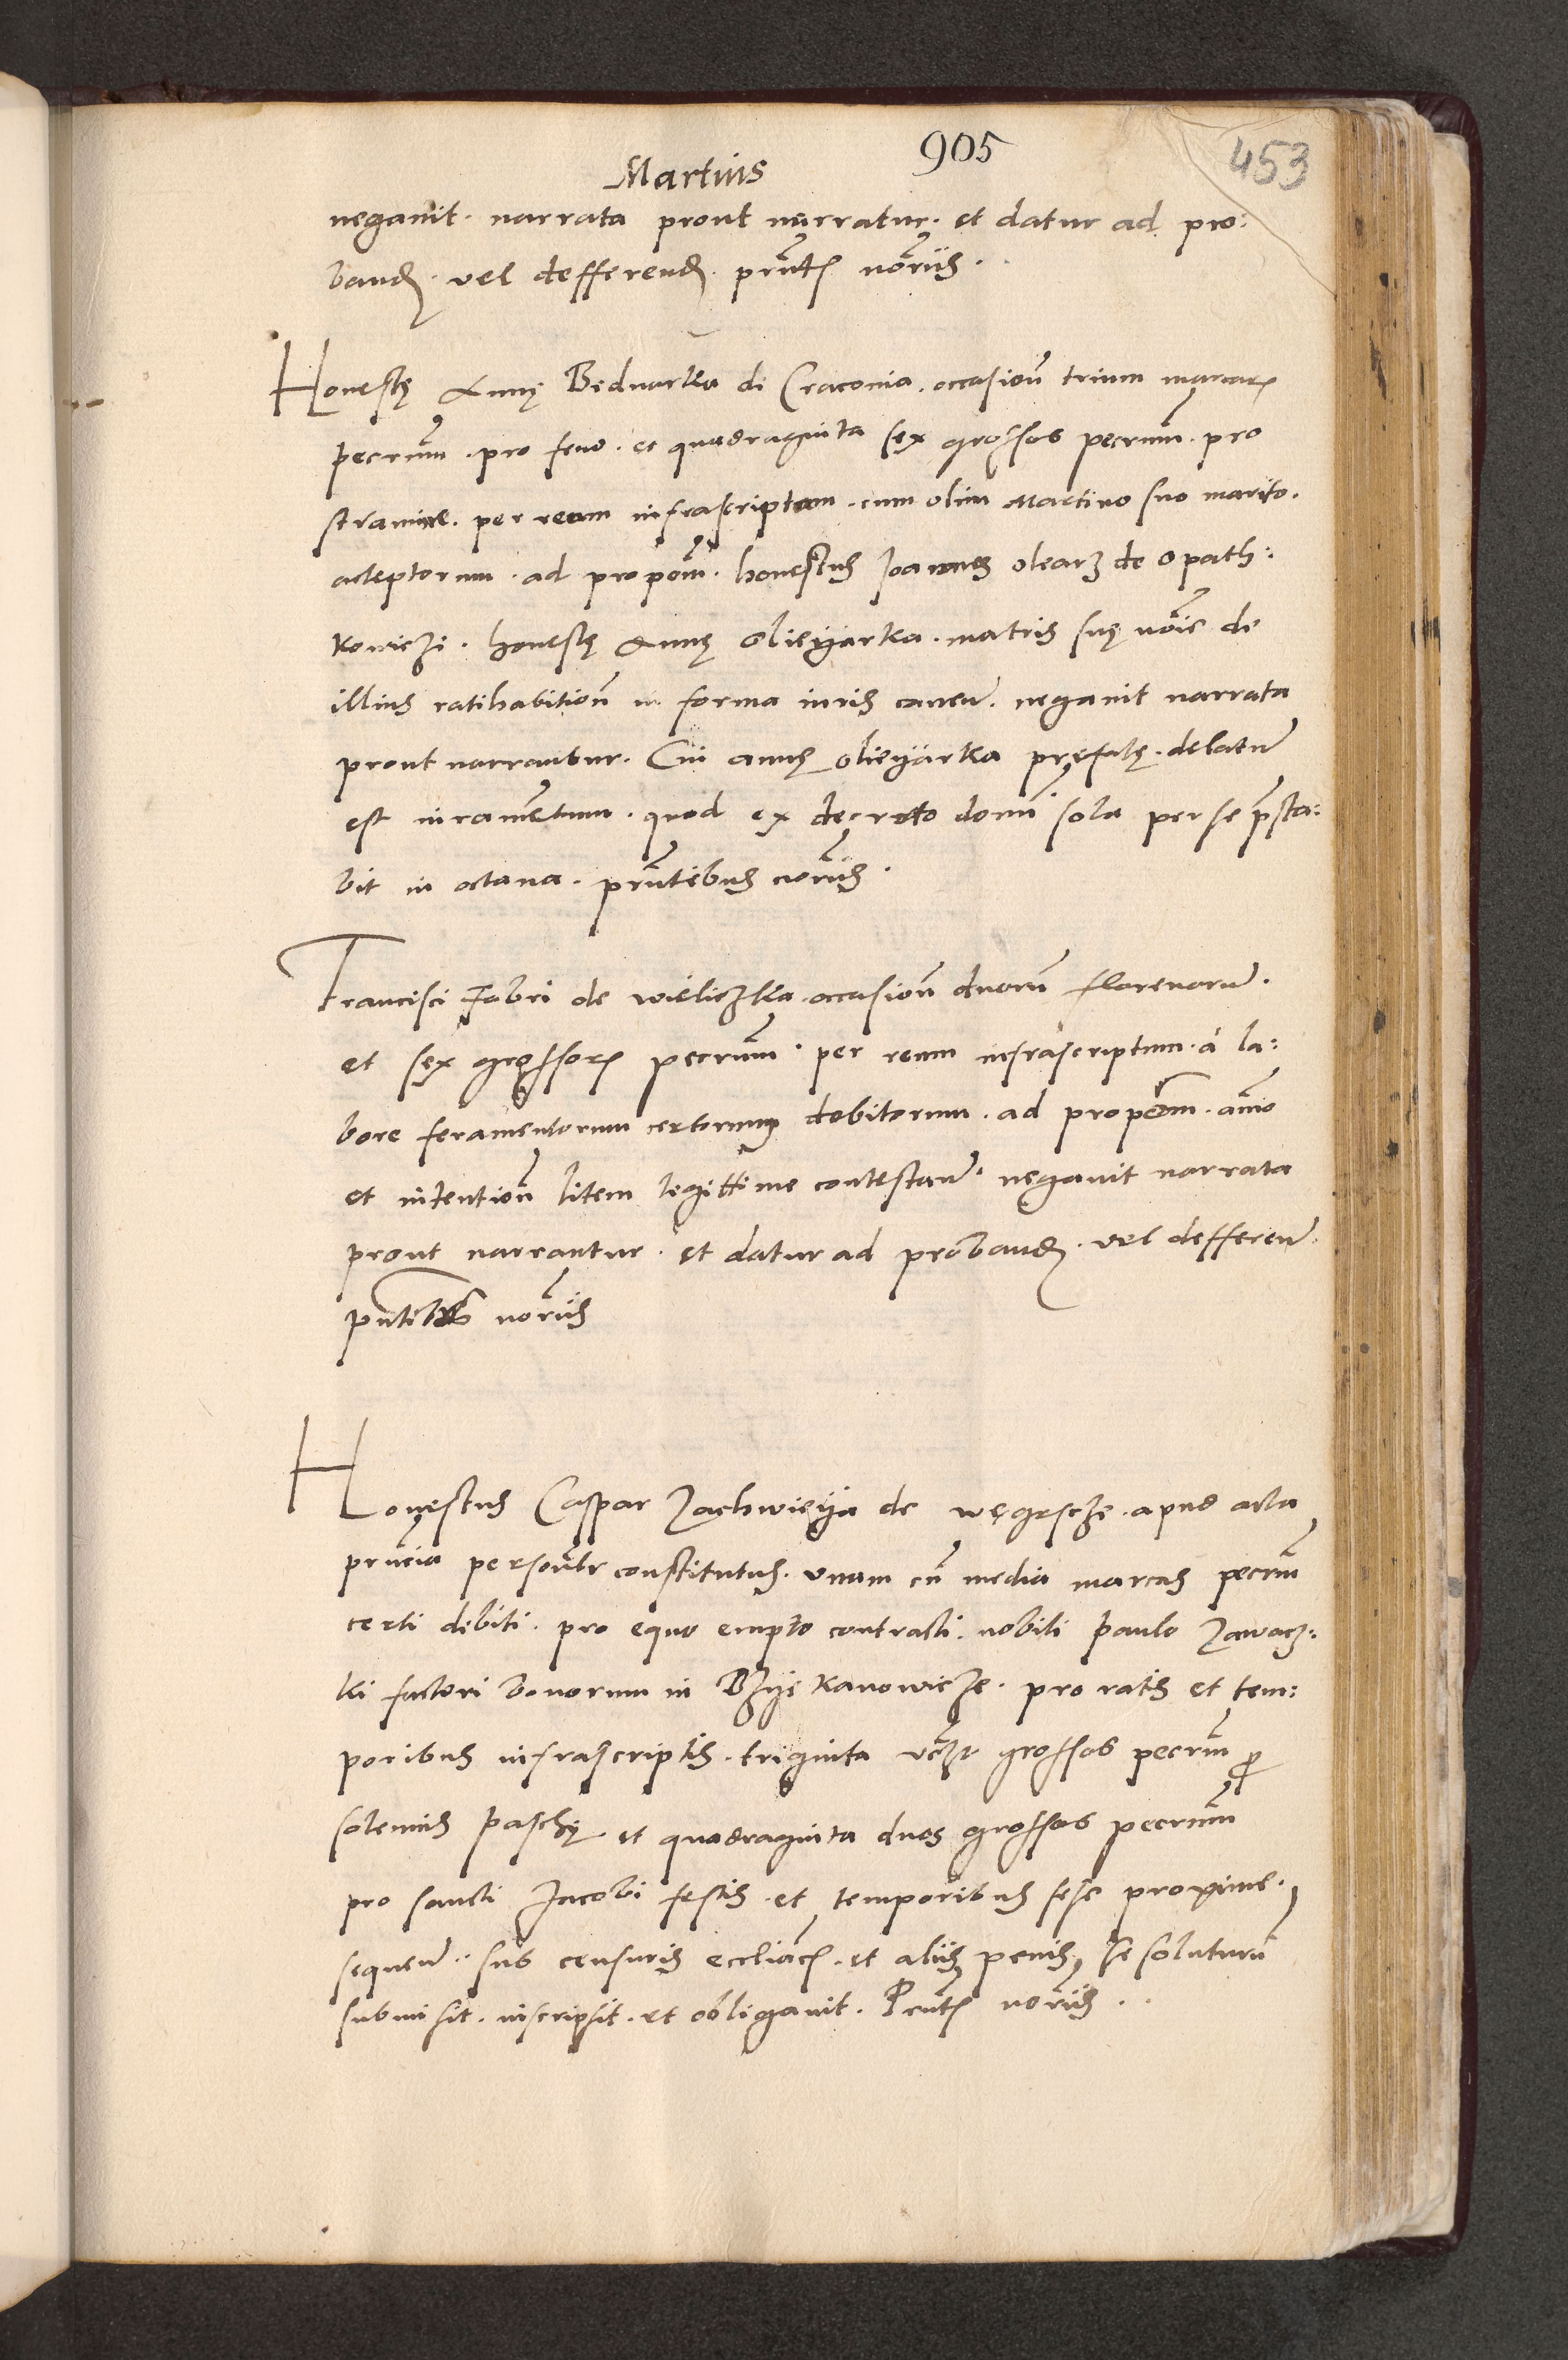 905
453
Martius
negavit. narrata prout narratur. et datur ad pro:
band. vel defferend. pnt͂ nor͂iis.
Honestę Annę Bednarka de Cracovia. occasion͂ trium marcar͂
pecun͂. pro feno. et quadraginta sex grossos pecun͂. pro
stramine. per ream infrascriptam. cum olim Martino suo marito.
acceptorum. ad propo͂m. honestus Joannes olearz de opath:
kowiczi. honestę Annę olieyarka. matris suę no͂ie de
illius ratihabition͂ in forma iuris caven͂. negavit narrata
prout narrantur. Cui annę olieyarka pręfatę. delatu͂
est iuramentum. quod ex decreto domi͂ sola per se p͂sta:
bit in octava. pn͂tibus nor͂iis.
Francisci Fabri de wieliczka. occasion͂ duoru͂ florenoru͂.
et sex grossor͂ pecun͂. per reum infrascriptum. à la:
bore feramentorum certorum debitorum. ad propo͂m. a͂mo
et intention͂ litem legittime contestan͂. negavit narrata
prout narrantur. et datur ad proband. vel defferen͂.
pn͂tibus nor͂iis
Honestus Caspar Zachwieya de węgrscze. apud acta
pn͂cia persona͂lr constitutus. unam cu͂ media marcas pecun͂
certi debiti. pro equo empto contracti. nobili paulo Zawacz:
ki factori bonorum in Bzyskanowicze. pro ratis et tem:
poribus infrascriptis. triginta vczt grossos pecun͂ p
solemnis paschę. et quadraginta duos grossos pecun͂
pro sancti Jacobi festis. et temporibus sese proxime.
sequen͂. sub censuris eccl͂iacs. et aliis penis, se soluturu͂
submisit. inscripsit. et obligavit. Pn͂t nor͂iis..